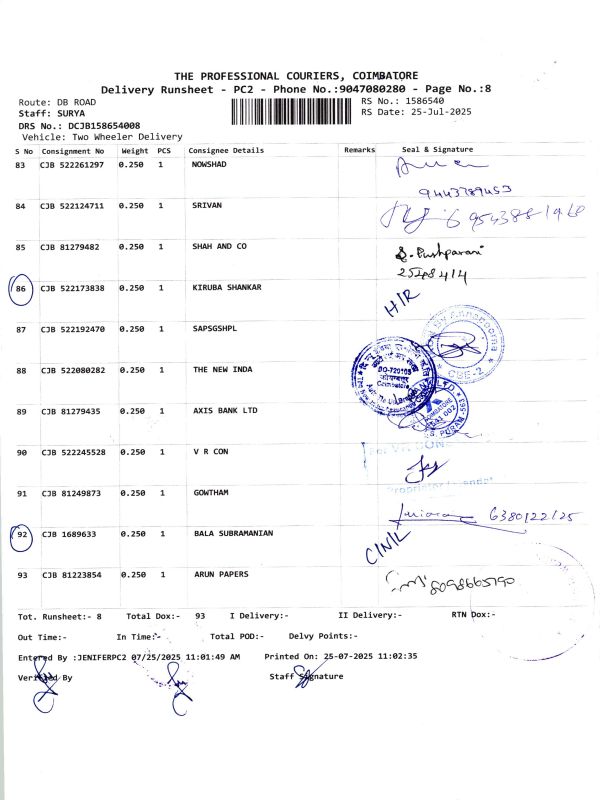 THE PROFESSIONAL COURIERS, COIMBATORE
Delivery Runsheet - PC2 - Phone No.:9047080280 - Page No.:8
Route: DB ROAD RS No.: 1586540
Staff: SURYA RS Date: 25-Jul-2025
DRS No.: DCJB158654008
Vehicle: Two Wheeler Delivery
S No Consignment No Weight PCS Consignee Details Remarks Seal & Signature
83 CJB 522261297 0.250 1 NOWSHAD
9443789453
84 CJB 522124711 0.250 1 SRIVAN
85 CJB 81279482 0.250 1 SHAH AND CO S. Pushparani
2548414
86 CJB 522173838 0.250 1 KIRUBA SHANKAR H/R
87 CJB 522192470 0.250 1 SAPSGSHPL
CBE-2
88 CJB 522080282 0.250 1 THE NEW INDA
BO-720105
Coimbatore
89 CJB 81279435 0.250 1 AXIS BANK LTD
90 CJB 522245528 0.250 1 V R CON
91 CJB 81249873 0.250 1 GOWTHAM
6380122125
92 CJB 1689633 0.250 1 BALA SUBRAMANIAN C/N/L
93 CJB 81223854 0.250 1 ARUN PAPERS
8098665790
Tot. Runsheet:- 8 Total Dox:- 93 I Delivery:- II Delivery:- RTN Dox:-
Out Time:- In Time:- Total POD:- Delvy Points:-
Entered By :JENIFERPC2 07/25/2025 11:01:49 AM Printed On: 25-07-2025 11:02:35
Verified By Staff Signature